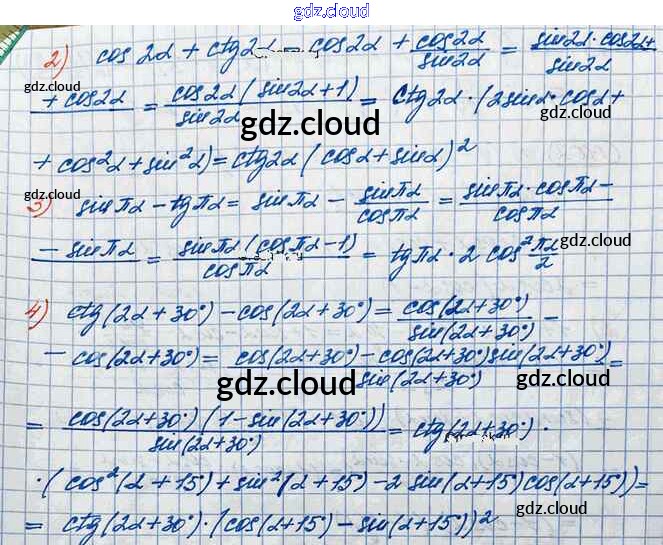 gdz.cloud
2) cos 2α + ctg 2α = cos 2α + cos 2α / sin 2α = sin 2α · cos 2α +
gdz.cloud
+ cos 2α / sin 2α = cos 2α (sin 2α + 1) / sin 2α = ctg 2α · (2 sin α · cos α +
gdz.cloud
gdz.cloud
+ cos²α + sin²α) = ctg 2α (cos α + sin α)²
gdz.cloud
3) sin πα − tg πα = sin πα − sin πα / cos πα = sin πα · cos πα −
− sin πα / cos πα = sin πα (cos πα − 1) / cos πα = tg πα · 2 cos² πα/2
gdz.cloud
gdz.cloud
4) ctg (2α + 30°) − cos (2α + 30°) = cos (2α + 30°) / sin (2α + 30°) −
− cos (2α + 30°) = cos (2α + 30°) − cos (2α + 30°) sin (2α + 30°) / sin (2α + 30°) =
gdz.cloud
gdz.cloud
gdz.cloud
= cos (2α + 30°) (1 − sin (2α + 30°)) / sin (2α + 30°) = ctg (2α + 30°) ·
· (cos² (α + 15) + sin² (α + 15) − 2 sin (α + 15) cos (α + 15)) =
gdz.cloud
gdz.cloud
= ctg (2α + 30°) · (cos (α + 15) − sin (α + 15))²
gdz.cloud